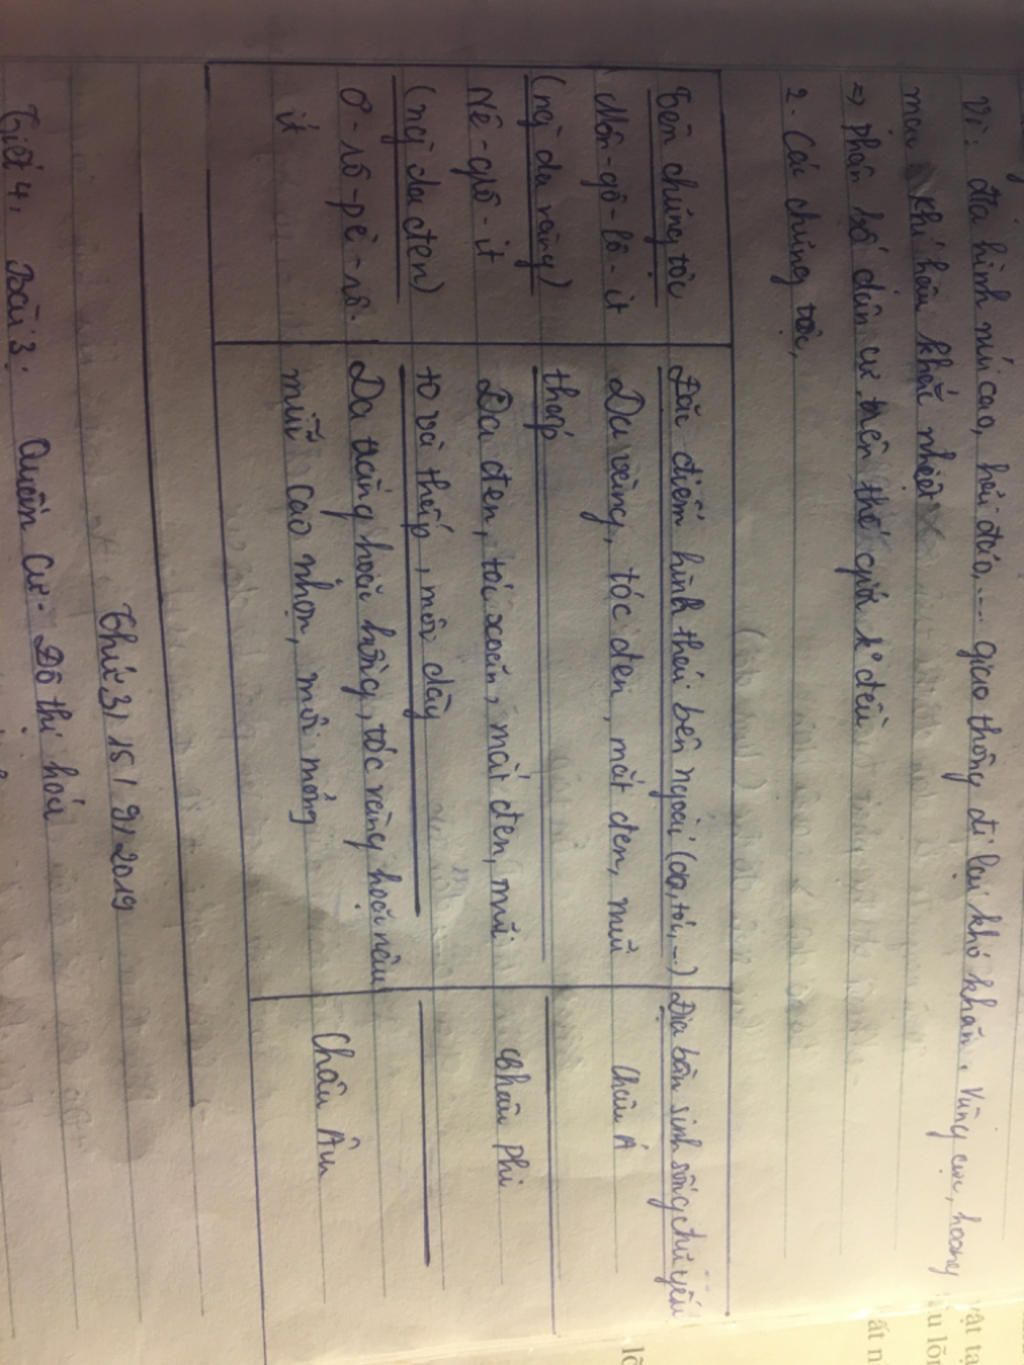 Vì: địa hình núi cao, hải đảo,... giao thông đi lại khó khăn. Vùng cực, hoang
mạc khí hậu khắc nhiệt
=> phân bố dân cư trên thế giới k° đều
2. Các chủng tộc.
Tên chủng tộc
Đặc điểm hình thái bên ngoài (da, tóc, ...)
Địa bàn sinh sống chủ yếu
Môn-gô-lô-it
Da vàng, tóc đen, mắt đen, mũi
Châu Á
(ng da vàng)
thấp
Nê-grô-it
Da đen, tóc xoăn, mắt đen, mũi
Châu Phi
(ng da đen)
to và thấp, môi dày
Ơ-rô-pê-ô-
Da trắng hoặc hồng, tóc vàng hoặc nâu
Châu Âu
it
mũi cao nhọn, môi mỏng
Thứ 3/ 15/ 9/ 2019
Tiết 4, Bài 3: Quần cư. Đô thị hóa
ật ta
u lõ
ất n
lõ